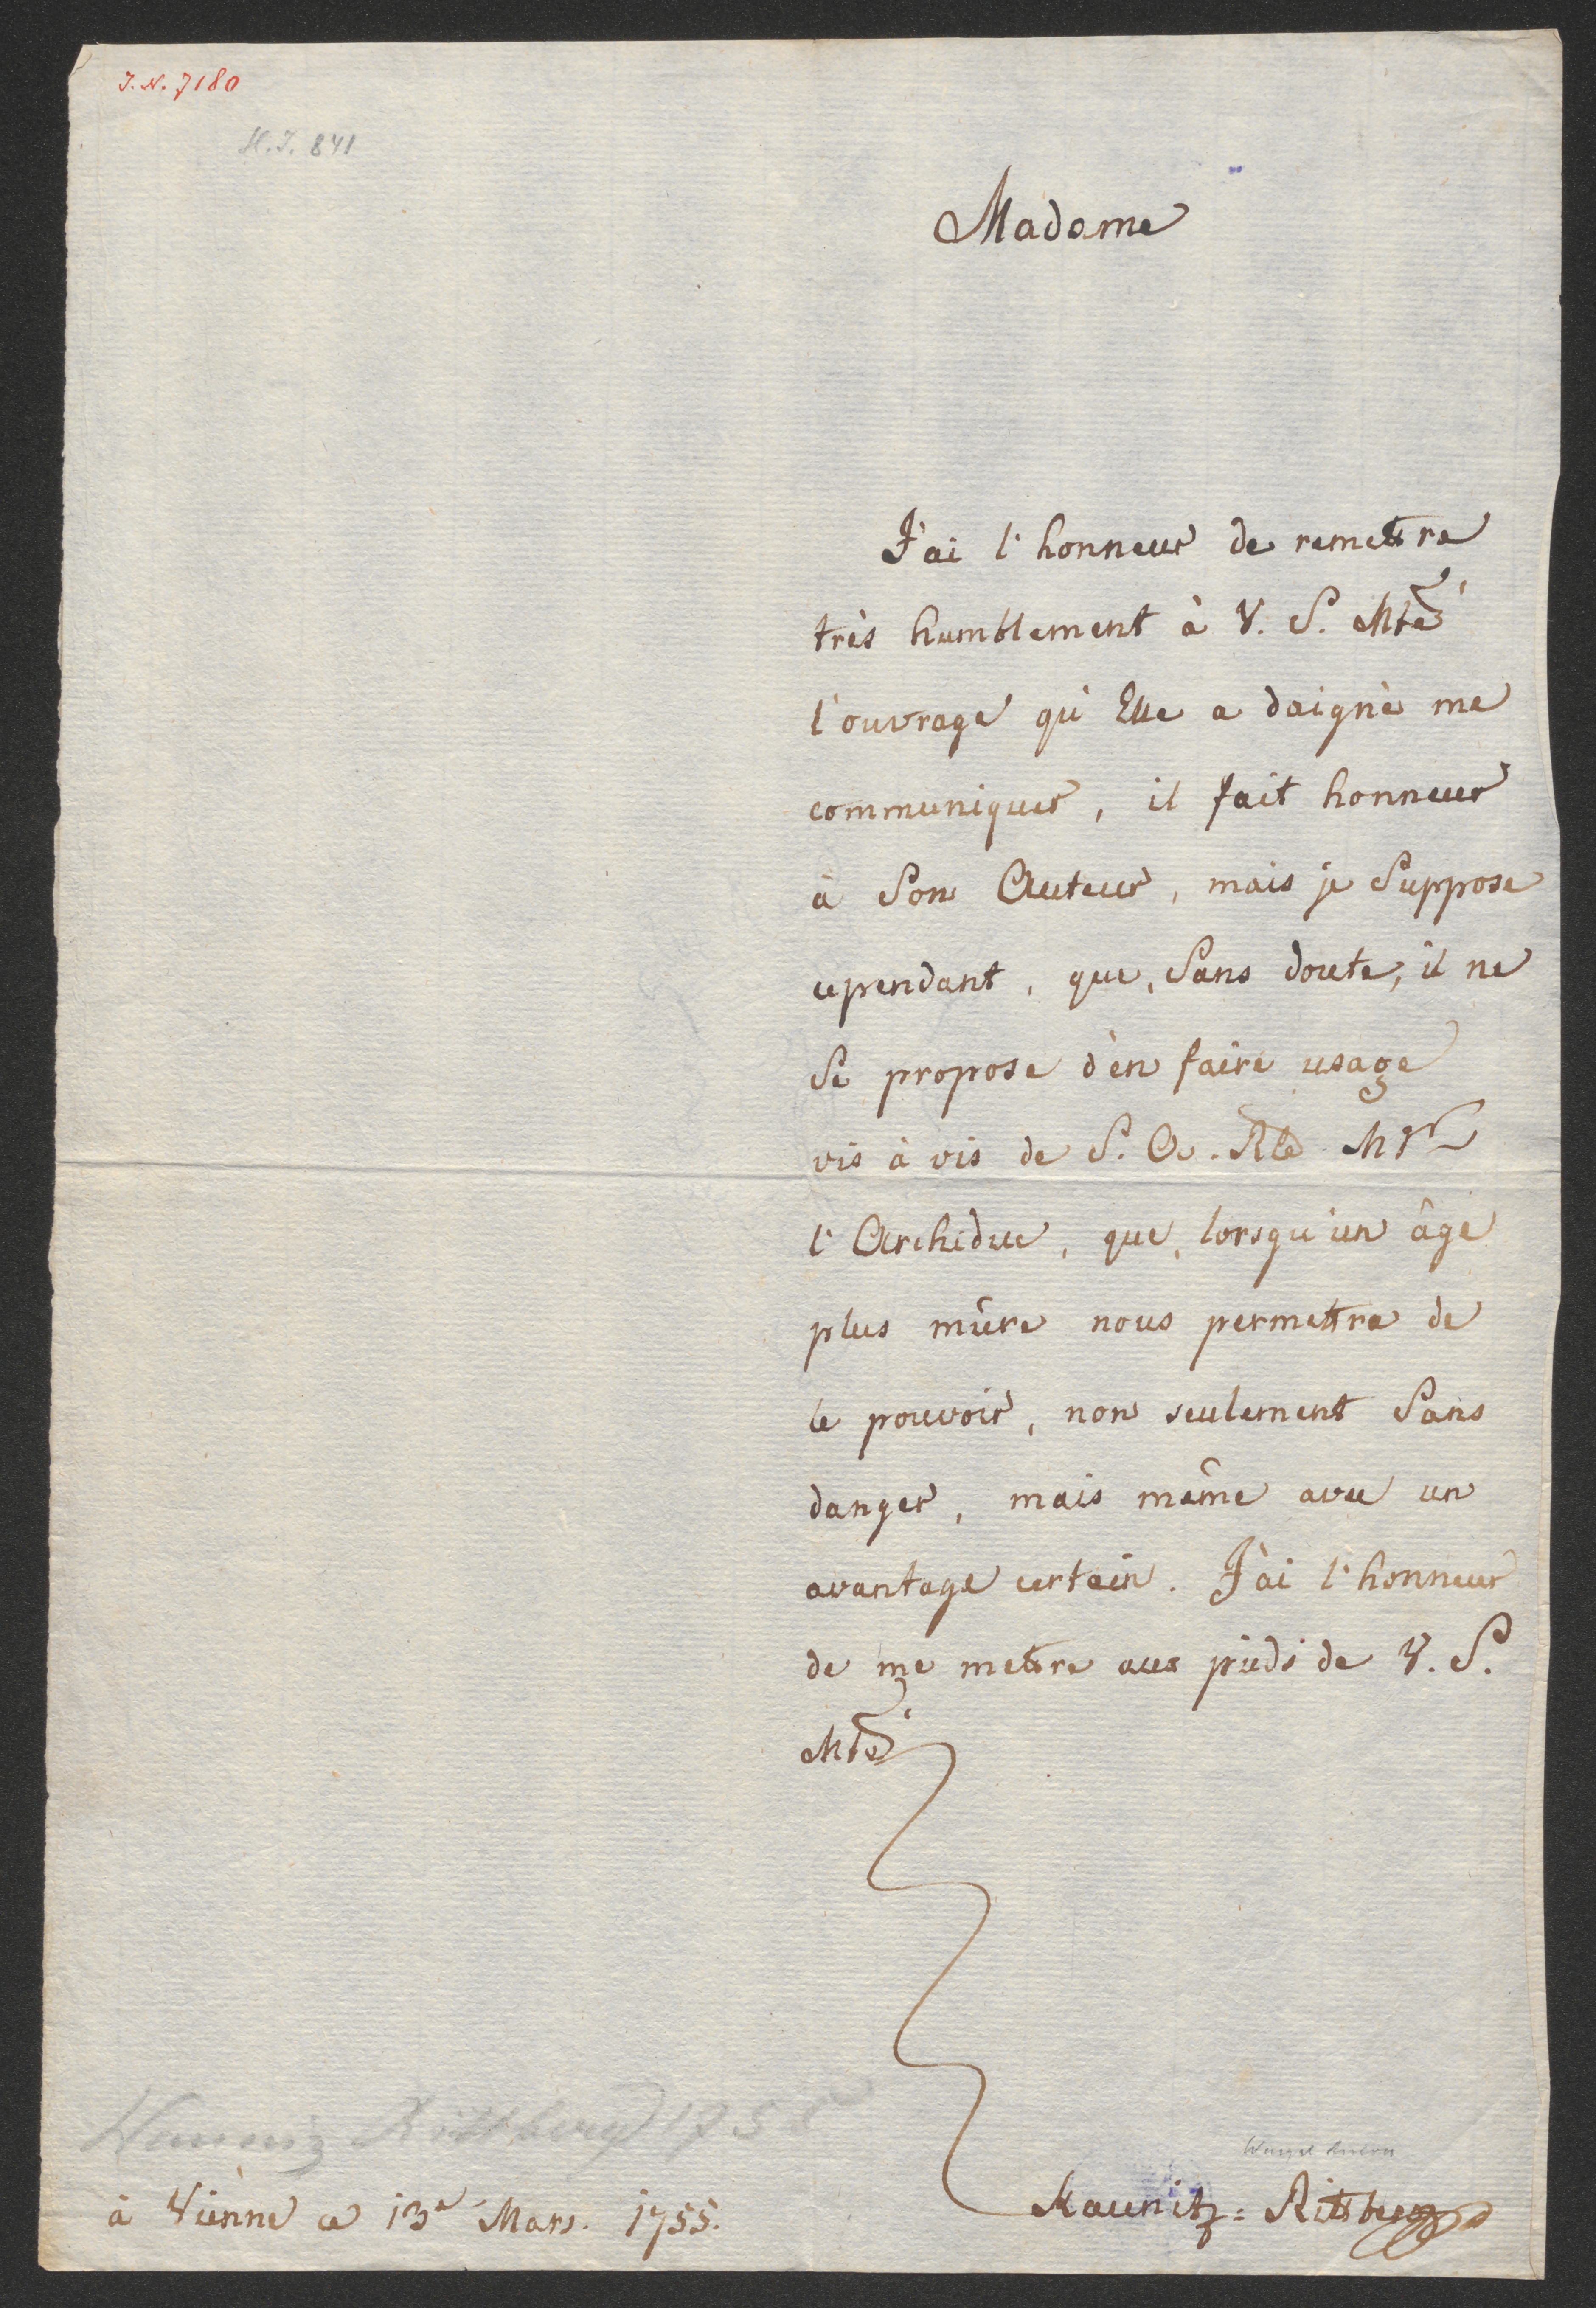 J. N. 7180
H. J. 841
Madame
J'ai l'honneur de remettre
très humblement à V. S. Mté
l'ouvrage qu'Elle a daigné me
communiquer, il fait honneur
à Son Auteur, mais je Suppose
cependant, que, Sans doute, il ne
Se propose d'en faire usage
vis à vis de S. A. Rle Mgr
l'Archiduc, que, lorsqu'un âge
plus mûre nous permettra de
le pouvoir, non seulement Sans
danger, mais même avec un
avantage certain. J'ai l'honneur
de me mettre aux pieds de V. S.
Mté
Kaunitz Rittberg 1755
Wenzel Anton
à Vienne ce 13e Mars. 1755.
Kaunitz=Rittberg